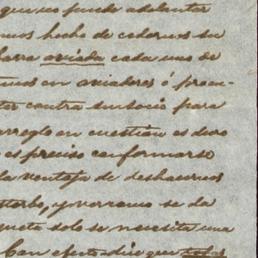 que no puede adelantar
mos hecho de cedernos su
barra aviada cada uno de
mos en aviadores ó procu-
tar contra su socio para
arreglo en cuestion es duro
es preciso conformarse
la ventaja de deshacernos
estorbo, y porramos se da
meta solo se necesita una
Con efecto dice que